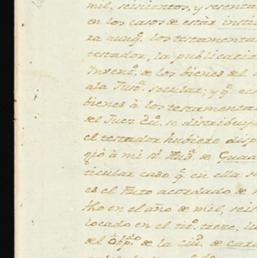 mil, seiscientos, y sesenta
en los casos de estar insti
ra aunq.e los testamenta
testador, la publicacion
Invent.o de los bienes del
ala Just.a secular; y q.e
bienes à los testamenta
del Juez Ec.o se distribuya
el testador hubiere disp
gió à mi R.l Aud.a de Guad
ticular caso q.e en ella s
es el Auto acordado de
tho en el año de mil, seis
locado en el n.o trece, l
del Obpo de la ciu.d de Cara